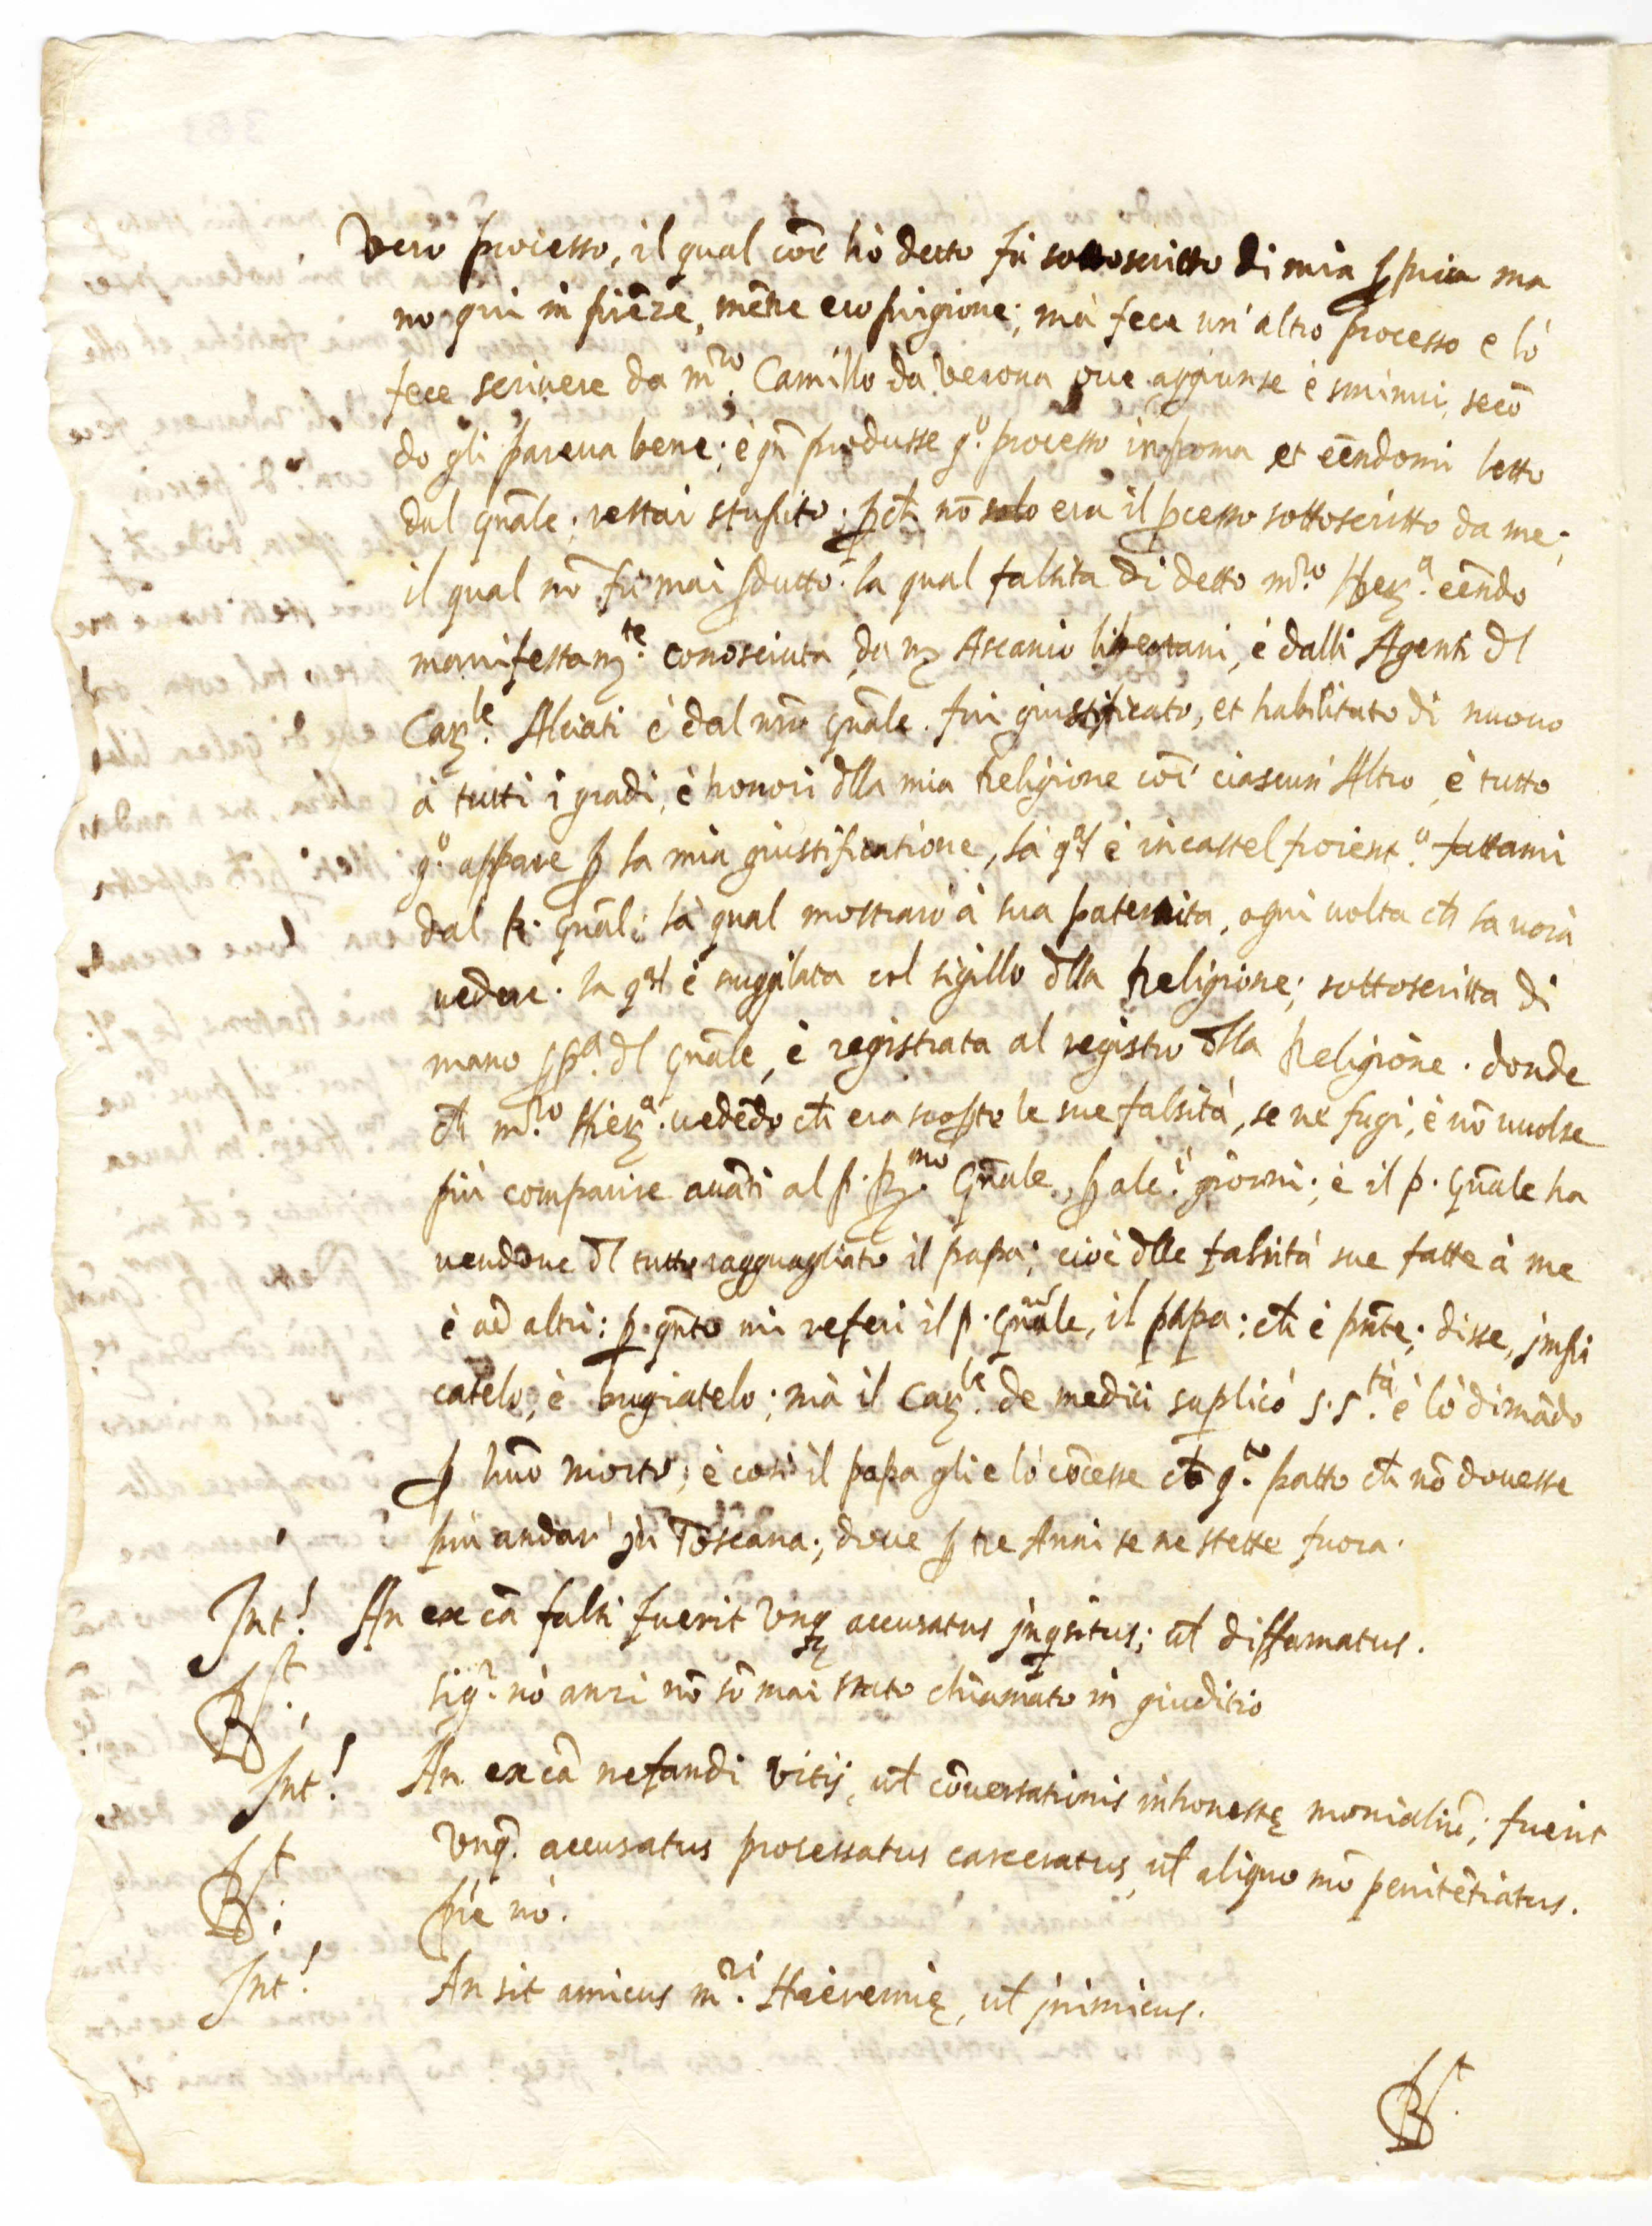 vero processo, il qual cõe hò detto fù sottoscritto di mia ꝓpria ma
no qui in firẽze, mẽtre ero prigione; mà fece un'altro processo e lò
fece scrivere da m.ro Camillo da Verona ove aggiunse è sminui, secõ
do gli pareva bene; è qñ produsse q.o processo in Roma et eẽndomi letto
dal gñale; restai stupito; ꝑch nõ solo era il ꝓcesso sottoscritto da me;
il qual nõ fù mai ꝓdutto. la qual falsita di detto m.ro Hier.a eẽndo
manifestam.te conosciuta da m Ascanio libertani, è dalli Agenti dl
Car.le Alciati è dal nrõ gñale. fui giustificato, et habilitato di nuovo
à tutti i gradi, è honori dlla mia Religione cõe ciascun' Altro, è tutto
q.o appare ꝑ la mia giustificatione, là q.al è in castel fiorent.o fattami
dal R. gñal; là qual mostrarò à sua paternita, ogni volta ch la vorà
vedere. la q.al è suggilata col sigillo dlla Religione; sottoscritta di
mano ꝓp.a dl gñale, è registrata al registro dlla Religione. donde
ch m.ro Hier.a vedẽdo ch era scoꝑto le sue falsità, se ne fugi, è nõ vuolse
più comparire avãti al p. R.mo Gñale, ꝑ alc.i giorni; è il p. gñale ha
vendone dl tutto ragguagliato il papa; cioè dlle falsità sue fatte à me
è ad altri: ꝑ qñto mi referi il p. gñale, il papa; ch è pñte; disse, impi
catelo, è brugiatelo; mà il Car.le de medici suplicò S.S.tà è lò dimãdò
ꝑ huõ morto; è così il papa glie lò cõcesse cõ q.to patto ch nõ dovesse
più andar' in Toscana; dove ꝑ tre Anni se ne stette fuora.
Int! An ex cã falsi fuerit unq accusatus inqsitus; ul diffamatus.
Rt. sig.r nò anzi nõ sõ mai stato chiamato in giuditio
Int! An ex cã nefandi vitij, ul cõversationis inhonestę monialiũ; fuerit
unq. accusatus processatus carceratus, ul aliquo mõ penitẽtiatus.
Rt: sre nò.
Int! An sit amicus m.ri Hieremię, ul inimicus.
Rt.